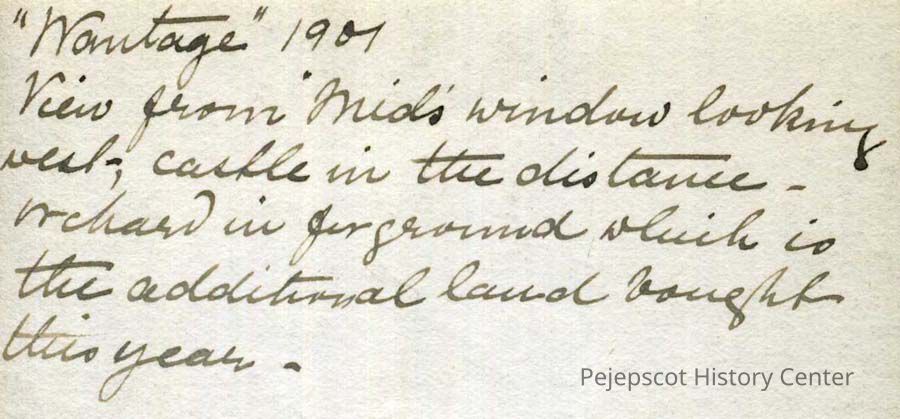 "Wantage" 1901
View from "Mid's window looking
west, castle in the distance -
orchard in forground which is
the additional land bought
this year -
Pejepscot History Center